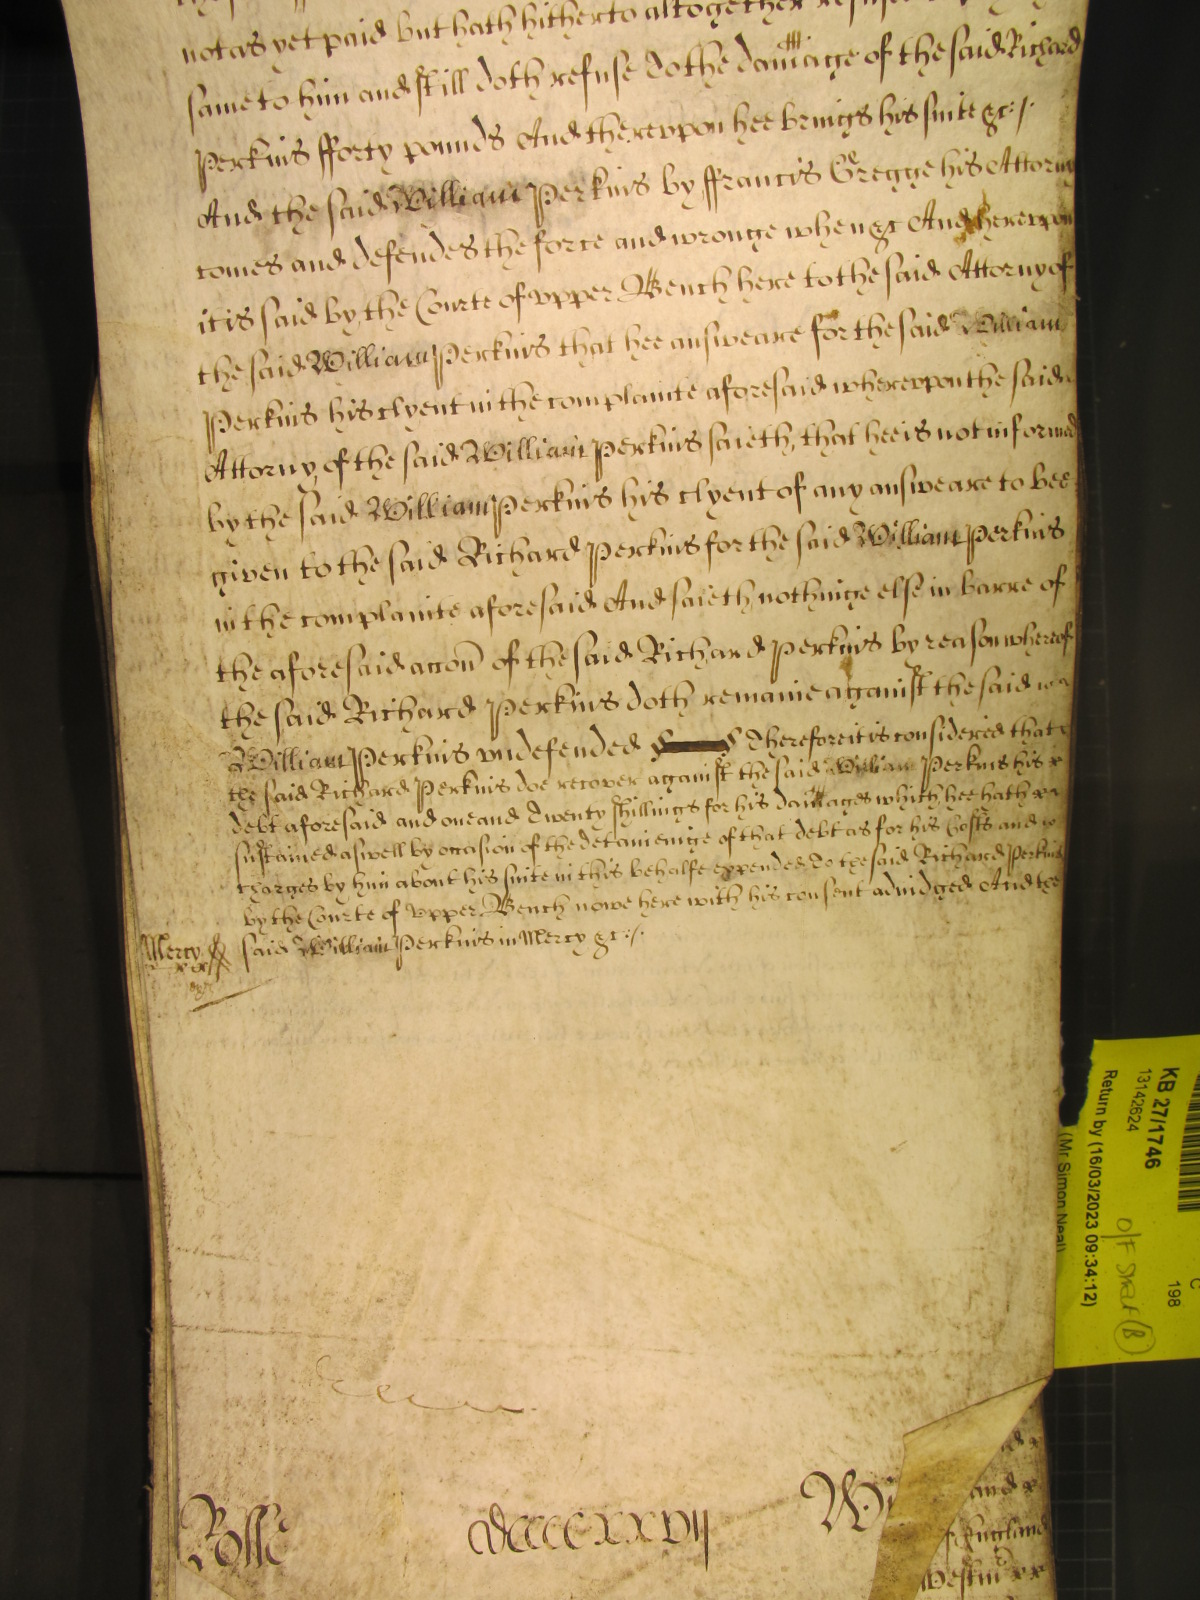 not as yet paid but hath hitherto altogether
same to him and still doth refuse To the damage of the said Richard
Perkins fforty pounds And therevpon hee brings his suite &c:/.
And the said William Perkins by ffrancis Gregge his Attorny
comes and defendes the force and wronge when &c And herevpon
it is said by the Courte of vpper Bench here to the said Attorny of
the said William Perkins that hee answeare for the said William
Perkins his clyent in the complainte aforesaid wherevpon the said
Attorny of the said William Perkins saieth that hee is not informed
by the said William Perkins his clyent of any answeare to bee
given to the said Richard Perkins for the said William Perkins
in the complainte aforesaid And saieth nothinge else in barre of
the aforesaid accon of the said Richard Perkins by reason whereof
the said Richard Perkins doth remaine against the said
William Perkins vndefended Therefore it is considered that
the said Richard Perkins doe recover against the said William Perkins his
debt aforesaid and one and Twenty shillings for his damages which hee hath
sustained aswell by occasion of the detaineinge of that debt as for his Costs and
charges by him about his suite in this behalfe expended To the said Richard Perkins
by the Courte of vpper Bench nowe here with his consent adiudged And the
Mercy said William Perkins in Mercy &c:/.
Rosse
CCCCXXVII
Wi
and
England
Westm
KB 27/1746
13142624
Return by (16/03/2023 09:34:12)
(Mr Simon Neal)
C
198
O/F
B